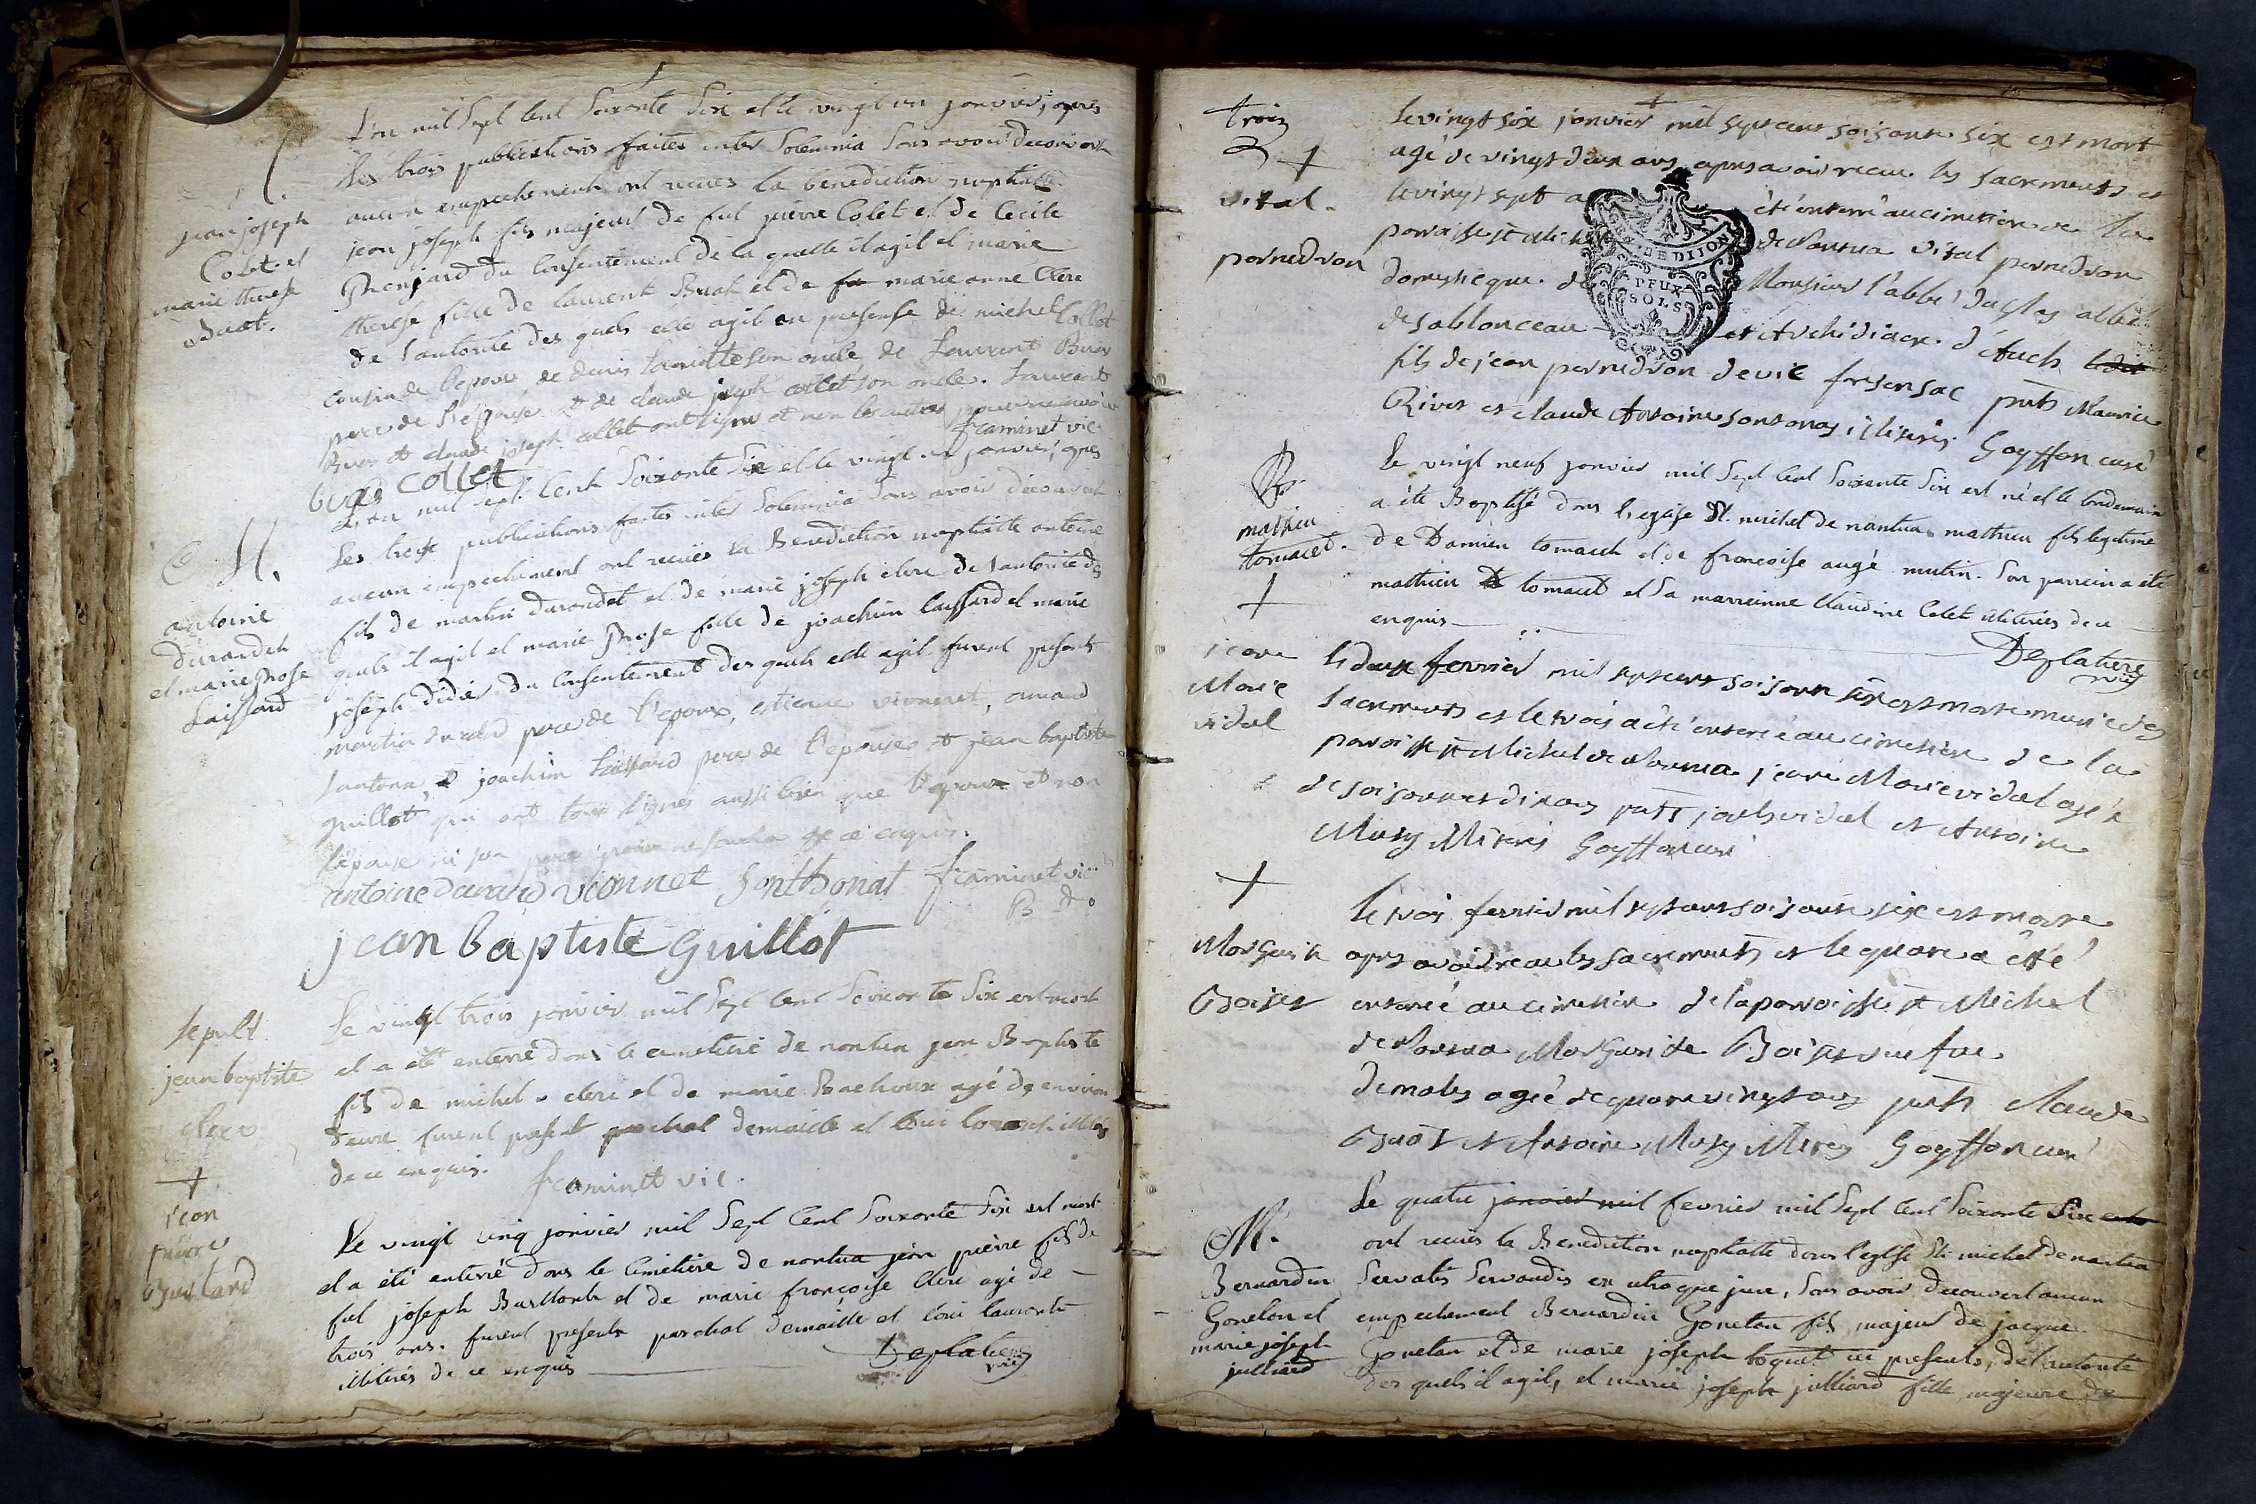 M.
jean joseph
Colet et
marie therese
Buat.
L'an mil Sept Cent Soixante Six et le vingt un janvier, apres
les trois publications faites inter Solemnia Sans avoir decouvert
aucun empechement ont recües la benediction nuptialle
jean joseph fils majeur de fut pierre Colet et de Cecile
du Consentement de la quelle il agit et marie
therese fille de laurent Buat et de marie anne Clerc
de l'autorité des quels elle agit en presense de michel Collet
cousin de l'epoux, de denis son oncle de Laurent Buat
pere de l'epouse et de claude joseph collet son oncle. Laurent
Buat et claude joseph collet ont signé et non les autres pour ne savoir
framinet vic
buat collet
M.
antoine
durandet
et marie Prose
Laissard
L'an mil sept Cent Soixante Six et le vingt un janvier, apres
Les trois publications faites inter Solemnia Sans avoir decouvert
aucun empechement ont recües la Benediction nuptialle antoine
fils de martin durandet et de marie joseph clerc de l'autorité des
quels il agit et marie Prose fille de joachim laissard et marie
joseph didier du Consentement des quels elle agit furent presents
martin durand pere de l'epoux, etienne vionnet, amand
santona, et joachim Laissard pere de l'epouse et jean baptiste
guillot qui ont tous signés aussi bien que l'epoux et non
l'epouse ni son pere pour ne savoir de ce enquis.
antoine durand vionnet Sonthonat framinet vic
jean baptiste guillot
sepult
jean baptiste
clerc
Le vingt trois janvier mil Sept Cent Soixante Six est mort
et a été enterré dans le cimetiere de nantua jean Baptiste
fils de michel clerc et de marie Bachoux agé de environ
furent present paschal demaille et loui laurent illiterés
de ce enquis. framinet vic.
+
jean
pierre
Burtard
Le vingt cinq janvier mil Sept Cent Soixante Six est mort
et a été enterré dans le Cimetiere de nantua jean pierre fils de
fut joseph et de marie françoise Clerc agé de
trois ans. furent presents paschal demaille et loui laurent
illiterés de ce enquis Deplatiere
vic
Trois
+
vital
pernedron
+
le vingt six janvier mil sept cent soisante six est mort
agé de vingt deux ans, apres avoir receu les sacrements et
le vingt sept a été enterré au cimetiere de la
paroisse st Michel de Nantua vital pernedron
domesticque de Monsieur l'abbé abbé
de sablonceau et Archidiacre d'Auch ledit
fils de jean pernedron de vic fesensac pnts Maurice
Rivet et claude Antoine sontonas illiterés Goyffon curé
GEN. DE DIJON
DEUX
SOLS
B.
mathieu
tomaced.
Le vingt neuf janvier mil Sept Cent Soixante Six est né et le lendemain
a été Baptisé dans l'eglise St. michel de nantua mathieu fils legitime
de Damien tomaced et de francoise augé mutin. Son parrein a été
mathieu tomaced et Sa marreinne Claudine Colet illiteriés de ce
enquis Deplatiere
vic
+
jeane
Marie
vidal
le deux fevrier mil sept cent soisante six est morte munie des
sacrements et le trois a été enterrée au cimetiere de la
paroisse st Michel de Nantua jeane Marie vidal agée
de soisante et dix ans pnts vidal et Antoine
Musy illiterés Goyffon curé
+
Marguerite
Boisset
le trois fevrier mil sept cent soisante six est morte
apres avoir receu les sacrements et le quatre a été
enterrée au cimetiere de la paroisse st Michel
de Nantua Marguerite Boisset
agée de quatre vingt ans pnts Claude
Buat et Antoine Musy illiterés Goyffon curé
M.
Bernardin
Gonetan et
marie joseph
julliard
Le quatre janvier mil fevrier mil Sept Cent Soixante Six
ont recües la Benediction nuptialle dans l'eglise St. michel de nantua
Servatis Servandis en utroque jure, Sans avoir decouvert aucun
empechement Bernardin Gonetan fils majeur de jacque
Gonetan et de marie joseph boquet ici presents, de l'autorité
des quels il agit, et marie joseph julliard fille majeure de